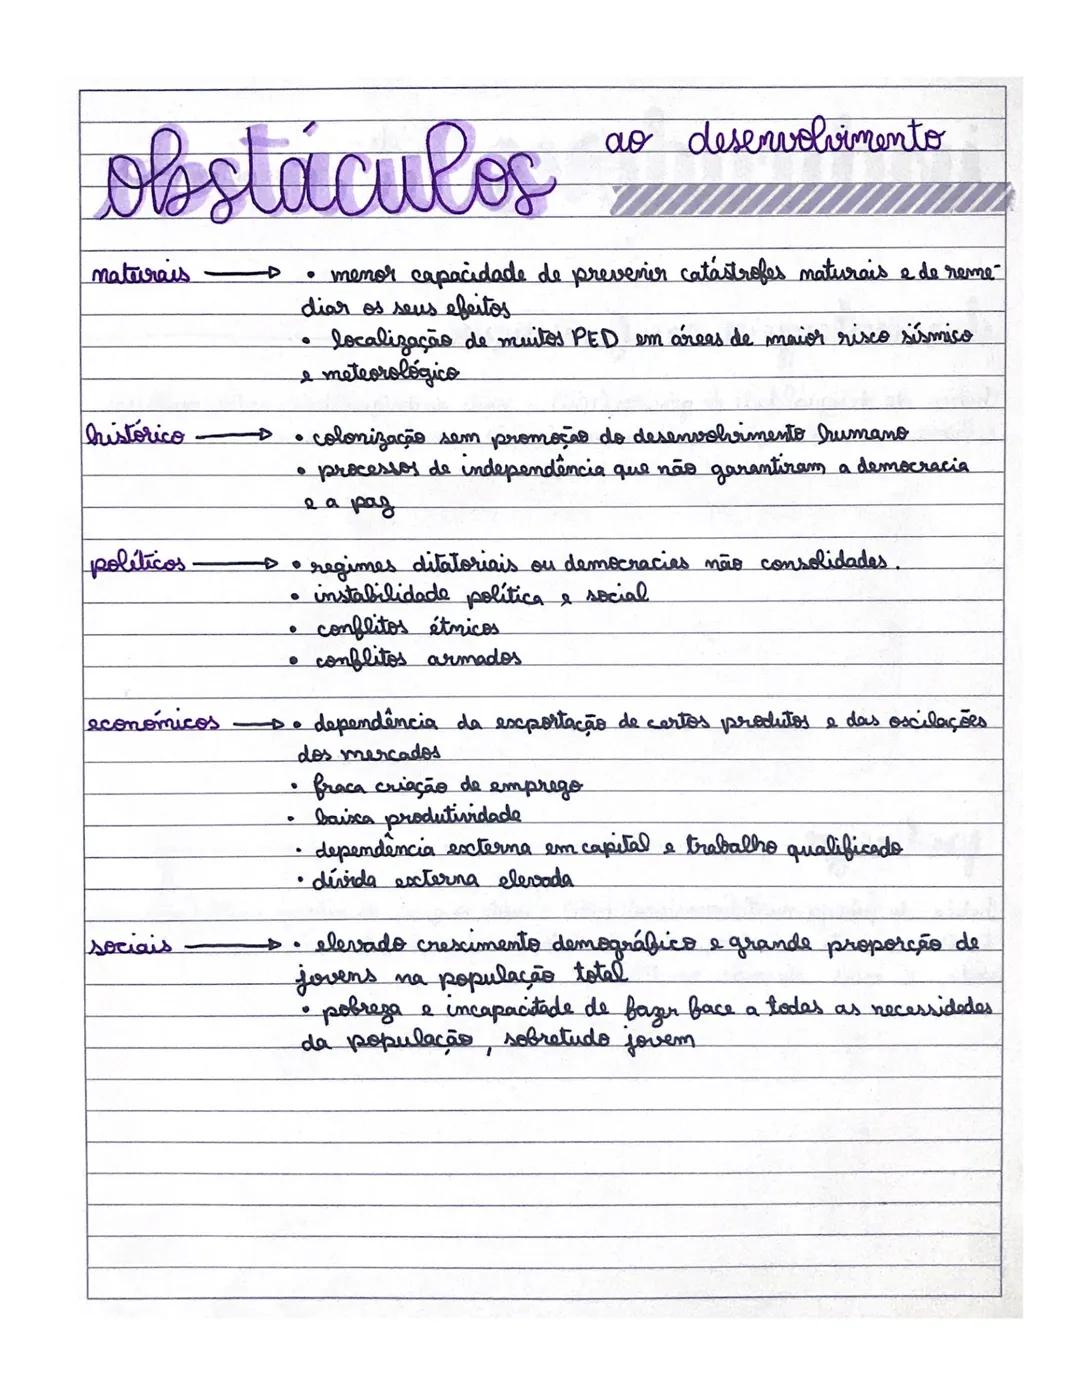 obstáculos ao desenvolvimento
naturais → • menor capacidade de prevenir catástrofes naturais e de reme-
diar os seus efeitos
• localização de muitos PED em áreas de maior risco sísmico
e meteorológico
histórico → • colonização sem promoção do desenvolvimento humano
• processos de independência que não garantiram a democracia
e a paz
políticos → • regimes ditatoriais ou democracias não consolidades.
• instabilidade política e social
• conflitos étnicos
• conflitos armados
económicos → • dependência da exportação de certos produtos e das oscilações
dos mercados
• fraca criação de emprego
• baixa produtividade
• dependência externa em capital e trabalho qualificado
• dívida externa elevada
sociais → • elevado crescimento demográfico e grande proporção de
jovens na população total
• pobreza e incapacitade de fazer face a todas as necessidades
da população, sobretudo jovem